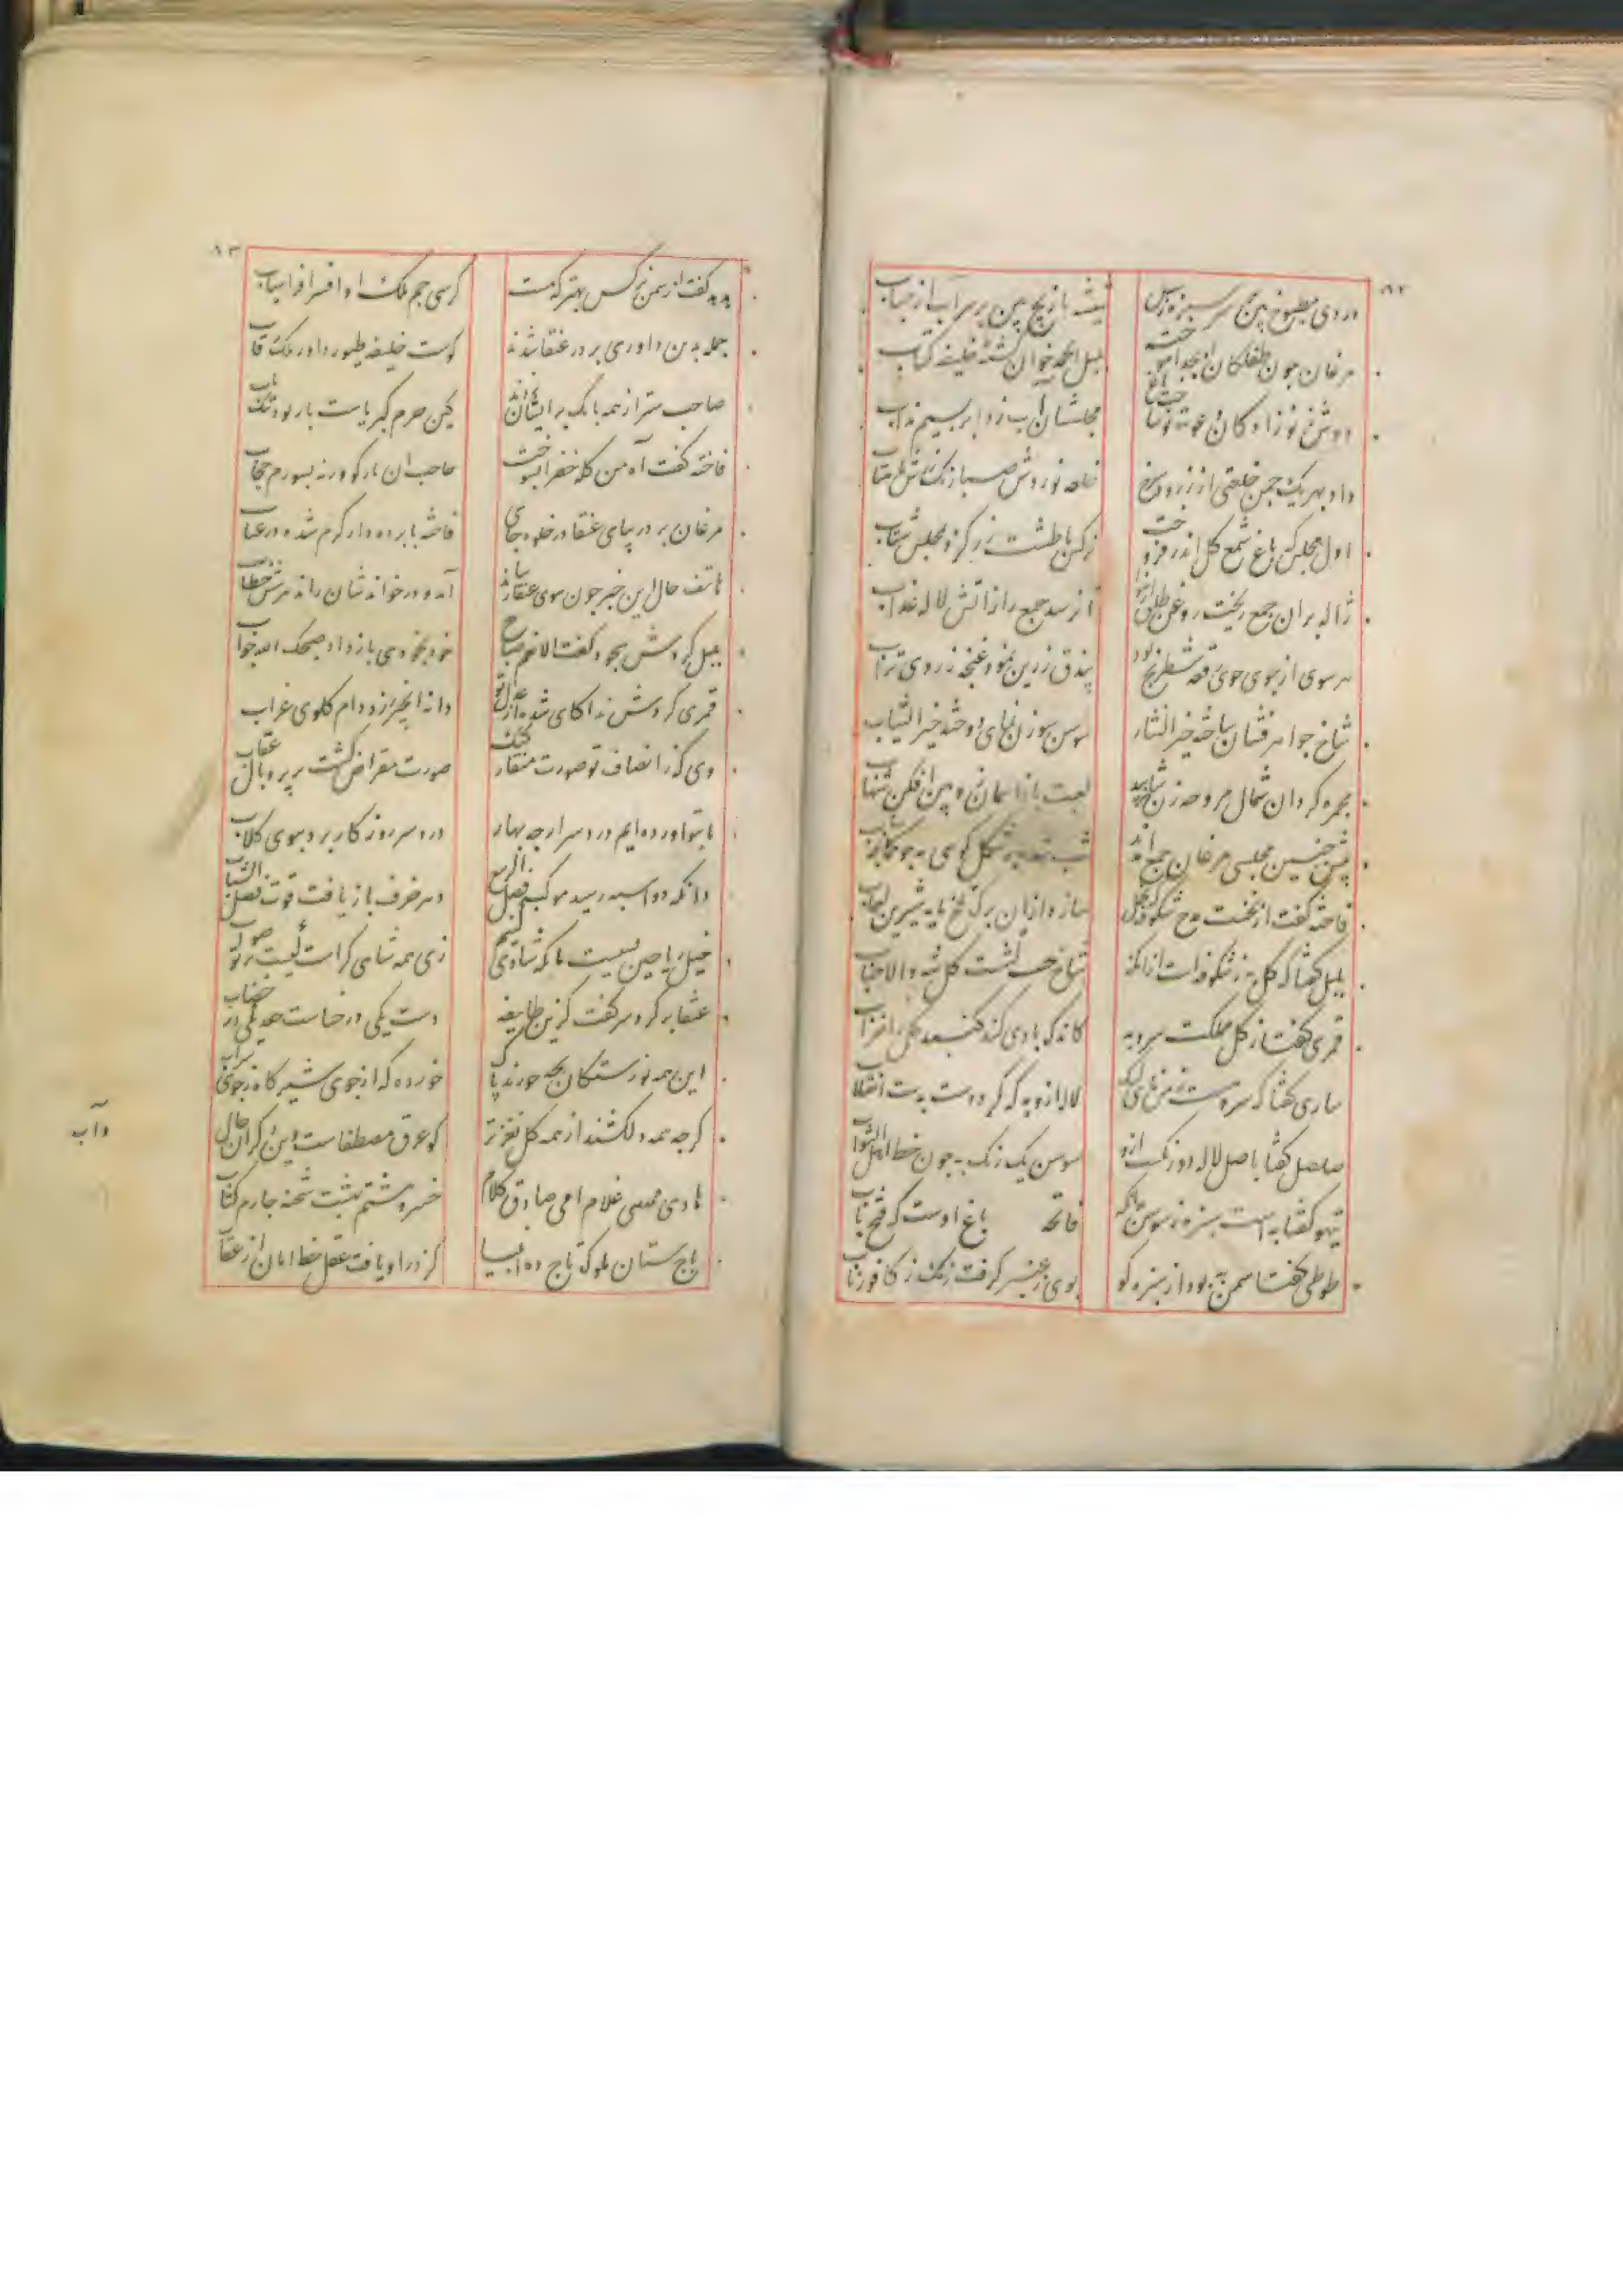 ۸۲
دردی مطبوخ بین بر سر سبزه ز سیل
شیشه بازیچه بین بر سر آب از حباب
مرغان چون طفلکان ابجدی آموخته
بلبل الحمد خوان گشته خلیفه کتاب
دوش ز نوزادگان دعوت نو ساخت باغ
مجلسشان آب زد ابر بسیم مذاب
داد بهر یک چمن خلعتی از زرد و سرخ
خلعه نوردش صبا رنگرزش ماهتاب
اول مجلس که باغ شمع گل اندر فروخت
نرگس با طشت زر کرد مجلس شتاب
ژاله بر آن جمع ریخت روغن طلق از هوا
تا نرسد جمع را ز آتش لاله عذاب
هر سوی از جوی جوی رقعه شطرنج بود
بیدق زرین نمود غنچه ز روی تراب
شاخ جواهر فشان ساخته خیر النثار
سوسن سوزن نمای دوخته خیر الثیاب
مجمره گردان شمال مروحه زن شاخ بید
لعبت باز آسمان زوبین افکن شهاب
پیش چنین مجلسی مرغان جمع آمدند
شب شده بر شکل موی مه چو کمانچه رباب
فاخته گفت از نخست مدح شکوفه که نحل
سازد از آن برگ تلخ مایه شیرین لعاب
بلبل گفتا که گل به ز شکوفه است از آنکه
شاخ جنیبت کش است گل شه والا جناب
قمری گفتا ز گل مملکت سرو به
کاندک بادی کند گنبد گل را خراب
ساری گفتا که سرو هست ز من پای لنگ
لاله از او به که کرد دشت بدشت انقلاب
صلصل گفتا باصل لاله دورنگست ازو
سوسن یک رنگ به چون خط اهل الثواب
تیهو گفتا به است سبزه ز سوسن از آنکه
فاتحه باغ اوست که فتح باب
طوطی گفتا سمن به بود از سبزه کو
بوی ز عنبر گرفت رنگ ز کافور ناب
۸۳
هدهد گفت از سمن نرگس بهتر که هست
کرسی جم ملک او و افسر افراسیاب
جمله بدین داوری بر در عنقا شدند
کوست خلیفه طیور داور مالک رقاب
صاحب ستر از همه بانک بر ایشان زدند
کین حرم کبریاست بار بود تنگ یاب
فاخته گفت آه من کله خضرا بسوخت
حاجب این بار کو ورنه بسوزم حجاب
مرغان بر در بپای عنقا در خلوه جای
فاخته با پرده دار گرم شده در عتاب
هاتف حال این خبر چون سوی عنقا رساند
آمد و در خواندشان راند بپرسش خطاب
بلبل کردش سجود گفت الا نعم صباح
خود بخودی باز داد صبحک الله جواب
قمری کردش ندا کای شده از عدل تو
دانه انجیر رز دام گلوی غراب
وی که ز انصاف تو صورت منقار کبک
صورت مقراض گشت بر پر و بال عقاب
ما بتو آورده ایم درد سر ار چه بهار
درد سر روزگار برد ببوی گلاب
دانکه دو اسبه رسید موکب فصل الربیع
دهر خرف باز یافت قوت فصل الشباب
خیل ریاحین بسیست ما بکه شادی کنیم
زین همه شاهی کراست کیست بر تو صواب
عنقا بر کرد سر گفت کزین طایفه
دست یکی در حناست جعد یکی در خضاب
این همه نورستگان بچه حورند پاک
خورده گه از جوی شیر گاه ز جوی شراب
گرچه همه دلکشند از همه گل نغزتر
کو عرق مصطفاست وین دگران خاک و آب
هادی مهدی غلام امی صادق کلام
خسرو هشتم بهشت شحنه چارم کتاب
باج ستان ملوک تاج ده انبیا
کز در او یافت عقل خط امان از عقاب